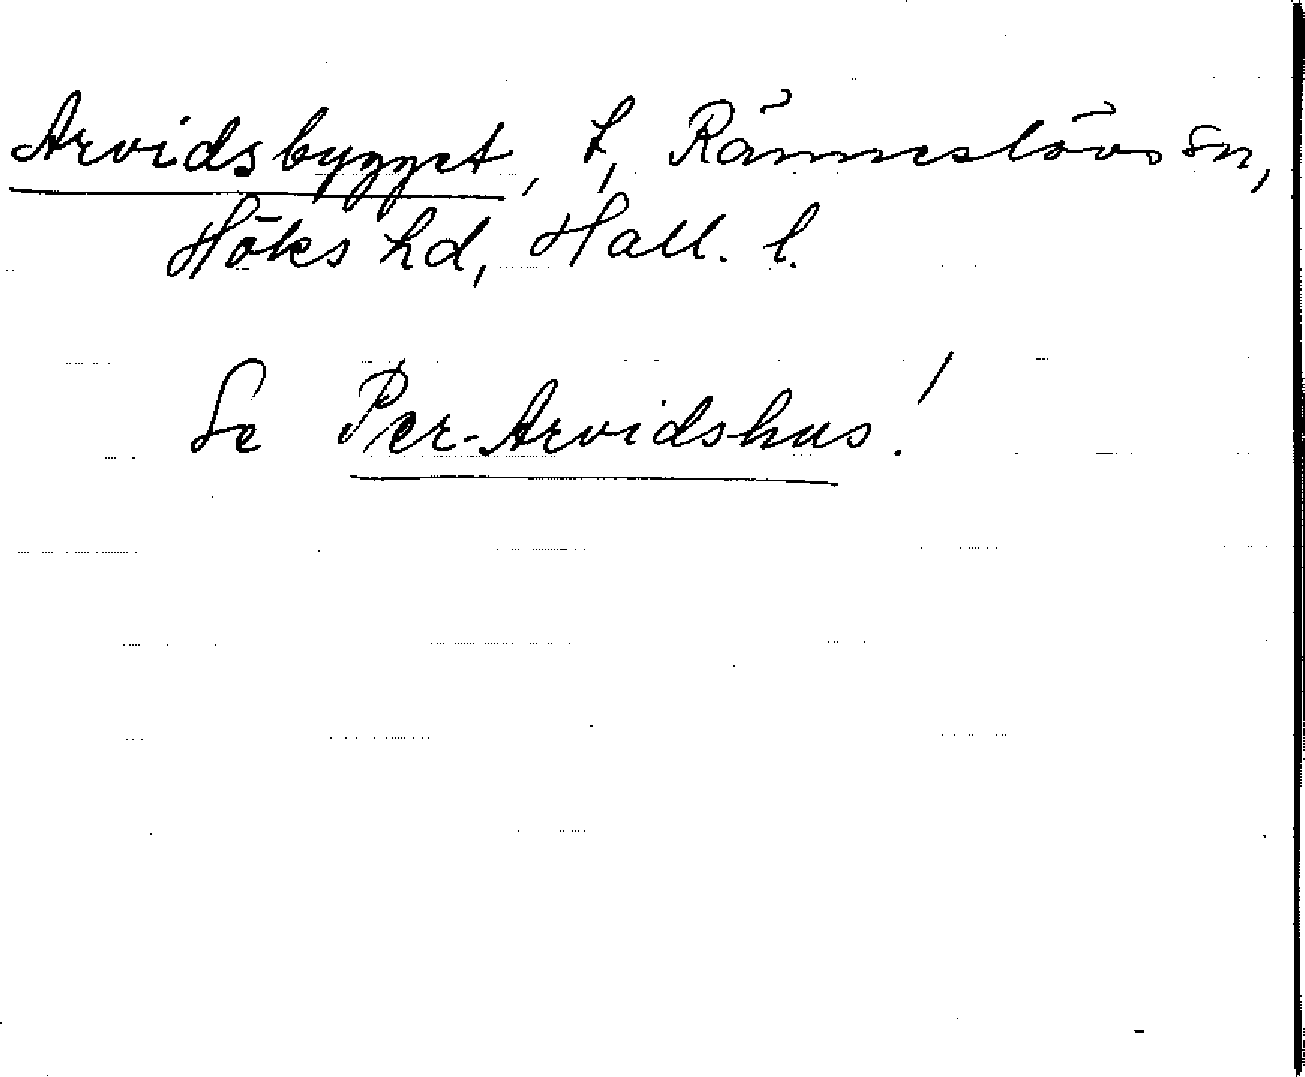 Arvidsbygget, t, Ränneslövs sn,
Höks hd, Hall. l.
Se Per-Arvidshus!